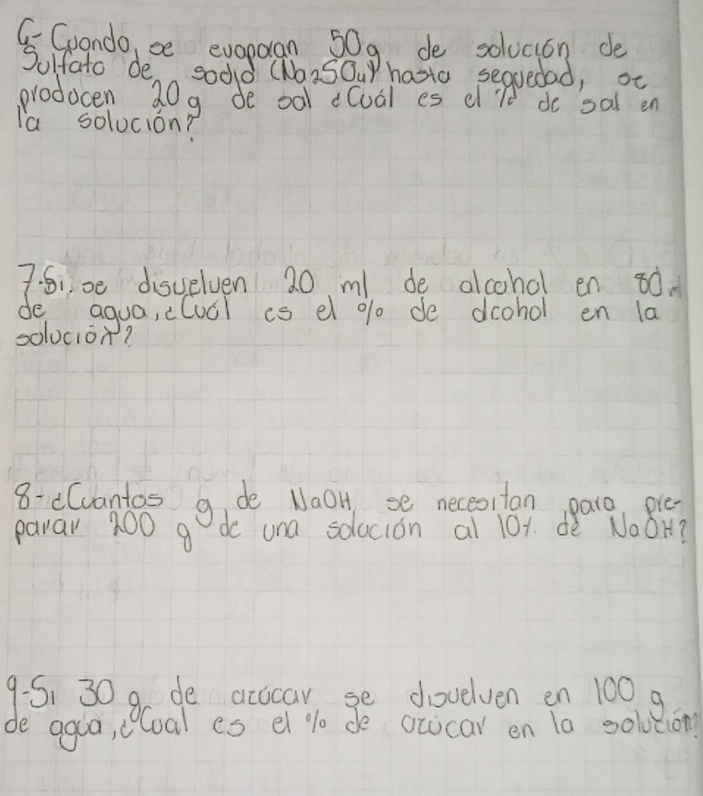 6- Cuando, se evaporan 50g de solución de
Sulfato de sodio (Na2SO4) hasta sequedad, se
producen 20g de sal ¿Cuál es el % de sal en
la solución?
7-Si, se disuelven 20 ml de alcohol en 80ml
de agua, ¿Cuál es el % de alcohol en la
solución?
8-¿Cuantos g de NaOH se necesitan para pre-
parar 200 g de una solución al 10% de NaOH?
9-Si 30 g de azúcar se disuelven en 100 g
de agua, ¿Cual es el % de azúcar en la solución?